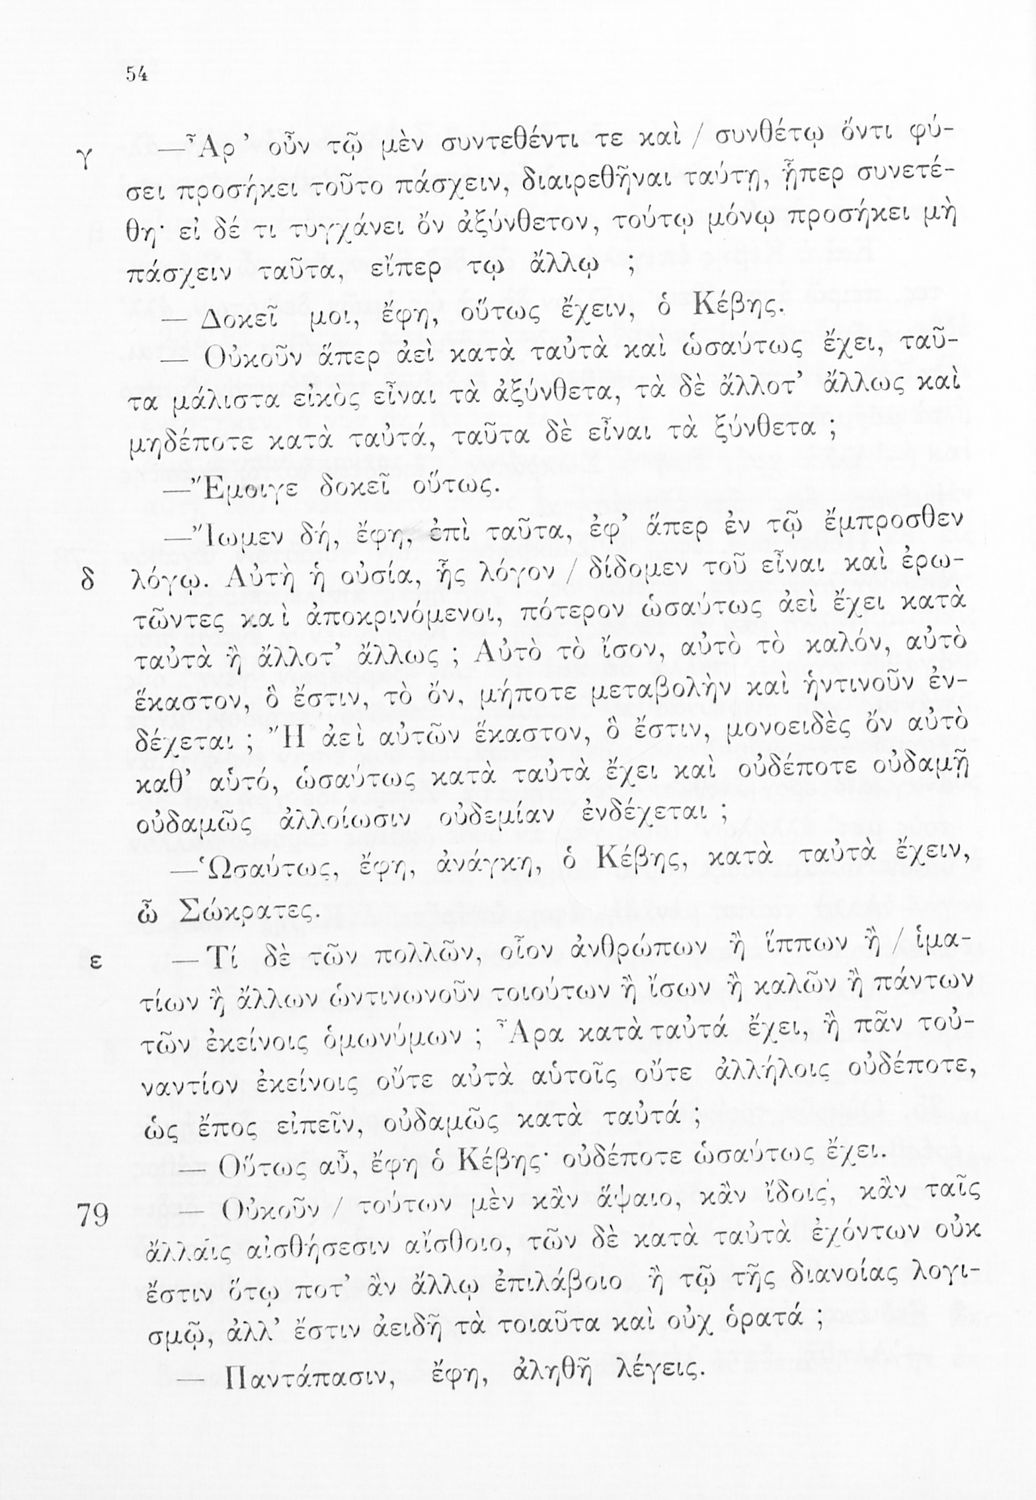 54
γ —Ἆρ’ οὖν τῷ μὲν συντεθέντι τε καὶ / συνθέτῳ ὄντι φύ-
σει προσήκει τοῦτο πάσχειν, διαιρεθῆναι ταύτῃ, ᾗπερ συνετέ-
θη· εἰ δέ τι τυγχάνει ὂν ἀξύνθετον, τούτῳ μόνῳ προσήκει μὴ
πάσχειν ταῦτα, εἴπερ τῳ ἄλλῳ ;
— Δοκεῖ μοι, ἔφη, οὕτως ἔχειν, ὁ Κέβης.
— Οὐκοῦν ἅπερ ἀεὶ κατὰ ταὐτὰ καὶ ὡσαύτως ἔχει, ταῦ-
τα μάλιστα εἰκὸς εἶναι τὰ ἀξύνθετα, τὰ δὲ ἄλλοτ’ ἄλλως καὶ
μηδέποτε κατὰ ταὐτά, ταῦτα δὲ εἶναι τὰ ξύνθετα ;
—Ἔμοιγε δοκεῖ οὕτως.
—Ἴωμεν δή, ἔφη, ἐπὶ ταῦτα, ἐφ’ ἅπερ ἐν τῷ ἔμπροσθεν
δ λόγῳ. Αὐτὴ ἡ οὐσία, ἧς λόγον / δίδομεν τοῦ εἶναι καὶ ἐρω-
τῶντες καὶ ἀποκρινόμενοι, πότερον ὡσαύτως ἀεὶ ἔχει κατὰ
ταὐτὰ ἢ ἄλλοτ’ ἄλλως ; Αὐτὸ τὸ ἴσον, αὐτὸ τὸ καλόν, αὐτὸ
ἕκαστον, ὃ ἔστιν, τὸ ὄν, μήποτε μεταβολὴν καὶ ἡντινοῦν ἐν-
δέχεται ; Ἢ ἀεὶ αὐτῶν ἕκαστον, ὃ ἔστιν, μονοειδὲς ὂν αὐτὸ
καθ’ αὑτό, ὡσαύτως κατὰ ταὐτὰ ἔχει καὶ οὐδέποτε οὐδαμῇ
οὐδαμῶς ἀλλοίωσιν οὐδεμίαν ἐνδέχεται ;
—Ὡσαύτως, ἔφη, ἀνάγκη, ὁ Κέβης, κατὰ ταὐτὰ ἔχειν,
ὦ Σώκρατες.
ε —Τί δὲ τῶν πολλῶν, οἷον ἀνθρώπων ἢ ἵππων ἢ / ἱμα-
τίων ἢ ἄλλων ὡντινωνοῦν τοιούτων ἢ ἴσων ἢ καλῶν ἢ πάντων
τῶν ἐκείνοις ὁμωνύμων ; Ἆρα κατὰ ταὐτά ἔχει, ἢ πᾶν τοὐ-
ναντίον ἐκείνοις οὔτε αὐτὰ αὑτοῖς οὔτε ἀλλήλοις οὐδέποτε,
ὡς ἔπος εἰπεῖν, οὐδαμῶς κατὰ ταὐτά ;
— Οὕτως αὖ, ἔφη ὁ Κέβης· οὐδέποτε ὡσαύτως ἔχει.
79 — Οὐκοῦν / τούτων μὲν κἂν ἅψαιο, κἂν ἴδοις, κἂν ταῖς
ἄλλαις αἰσθήσεσιν αἴσθοιο, τῶν δὲ κατὰ ταὐτὰ ἐχόντων οὐκ
ἔστιν ὅτῳ ποτ’ ἂν ἄλλῳ ἐπιλάβοιο ἢ τῷ τῆς διανοίας λογι-
σμῷ, ἀλλ’ ἔστιν ἀειδῆ τὰ τοιαῦτα καὶ οὐχ ὁρατά ;
— Παντάπασιν, ἔφη, ἀληθῆ λέγεις.